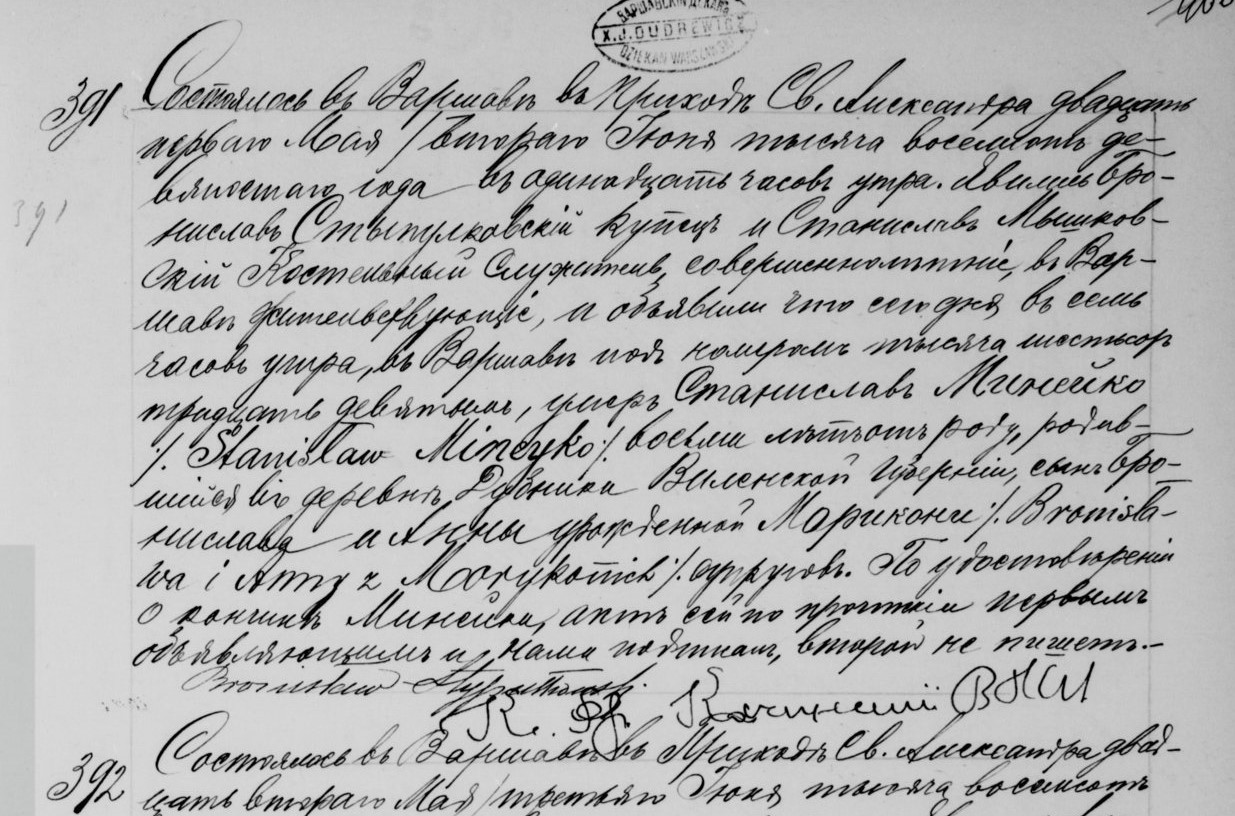 ВАРШАВСКІЙ ДЕКАНЪ
X.J.DUDREWICZ
DZIEKAN WARSZAWSKI
391 Состоялось въ Варшавѣ въ приходѣ Св. Александра двадцать
перваго Мая / втораго Іюня тысяча восемьсотъ де-
вяностаго года въ одинадцать часовъ утра. Явились Бро-
391
ниславъ Стыпулковскій купецъ и Станиславъ Мышков-
скій Костельный служитель, совершеннолѣтніе, въ Вар-
шавѣ жительствующіе, и объявили что сегодня въ семь
часовъ утра, въ Варшавѣ подъ номеромъ тысяча шестьсотъ
тридцать девятымъ, умеръ Станиславъ Минейко
/. Stanisław Mineyko ./ восьми лѣтъ отъ роду, родив-
шійся въ деревнѣ Виленской Губерніи, сынъ Бро-
нислава и Анны урожденной Марикони /. Bronisła-
wa i Anny z Morykonich ./ супруговъ. По удостовѣреніи
о кончинѣ Минейки, актъ сей по прочтеніи первымъ
объявляющимъ и нами подписанъ, второй не пишетъ.-
Bronisław Stypułkowski.
К. Качинскій
392 Состоялось въ Варшавѣ въ Приходѣ Св. Александра двад-
цать втораго Мая / третьяго Іюня тысяча восемьсотъ